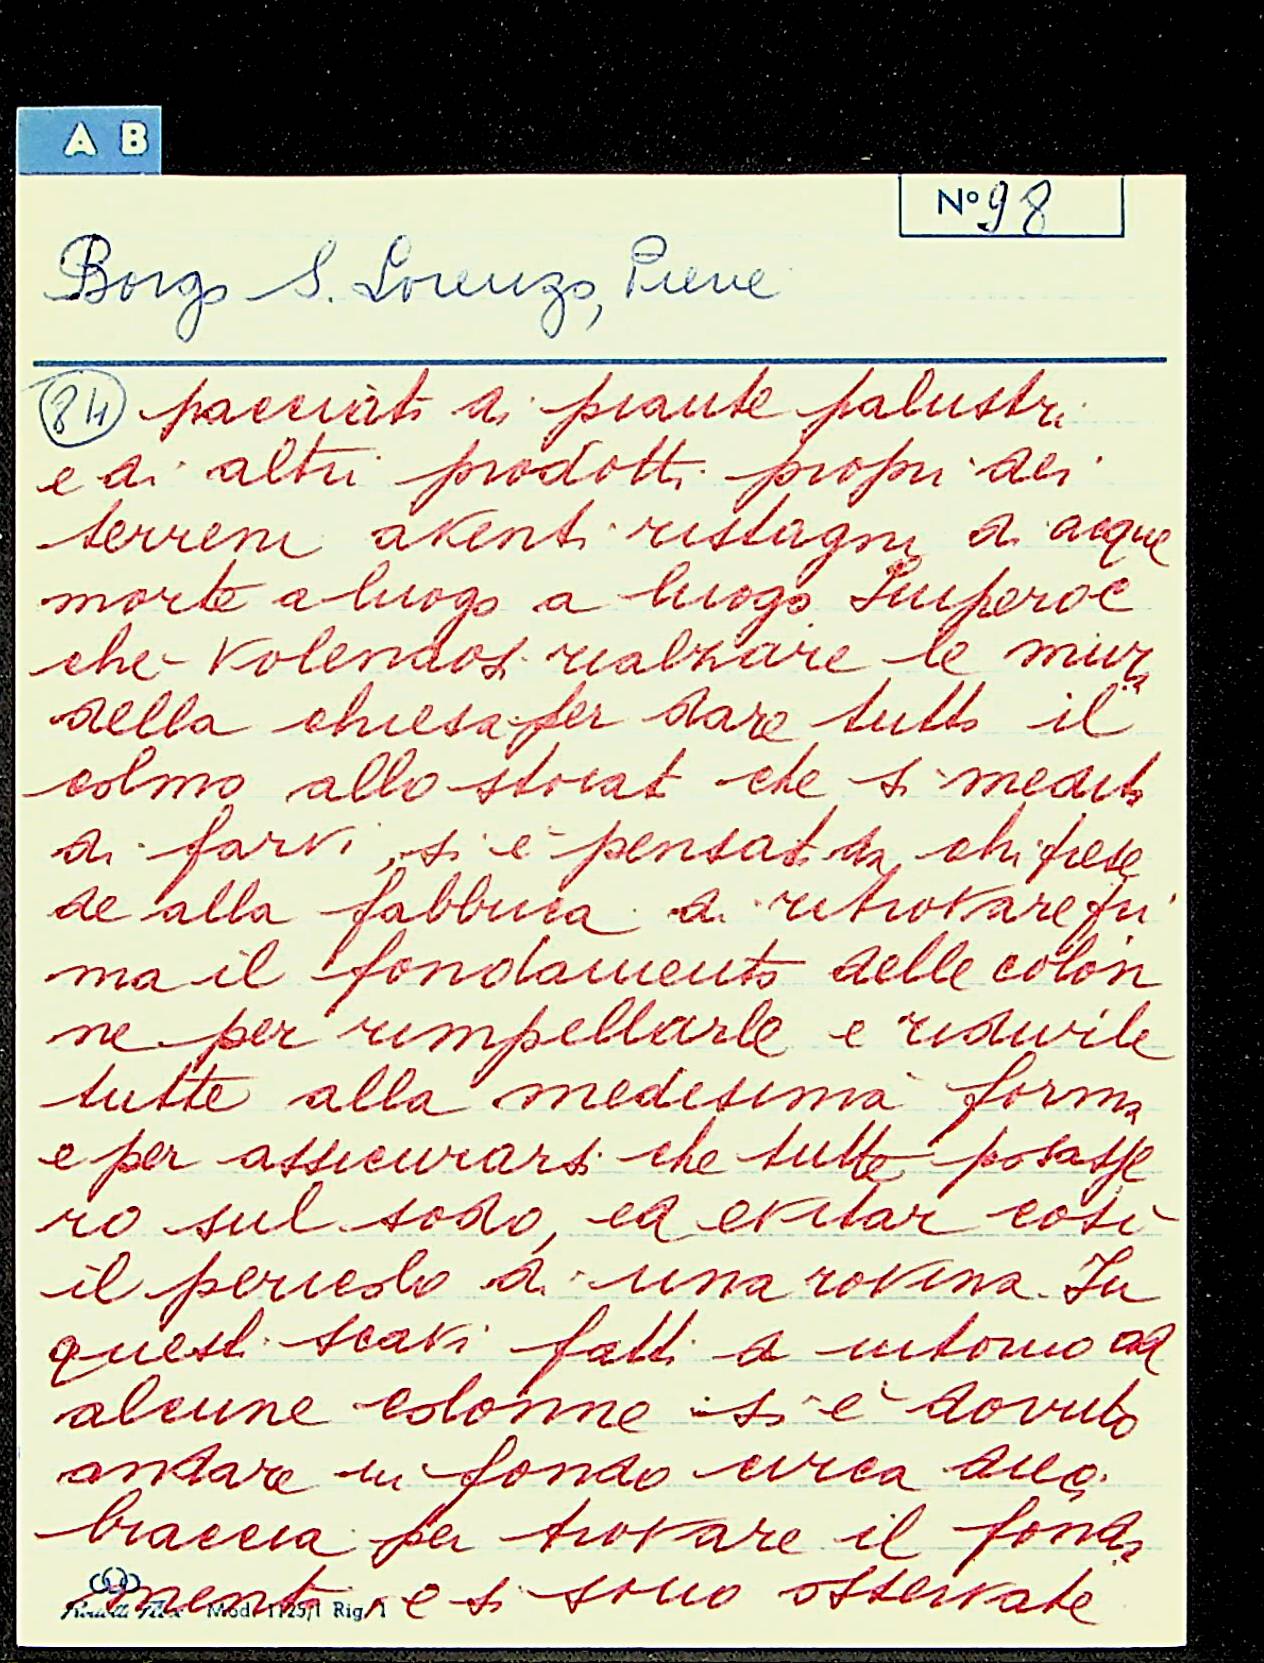 A B
Nº 98
Borgo S. Lorenzo, Pieve
84 pacciati di piante palustri
e di altri prodotti propri dei
terreni aventi ristagni di acque
morte a luogo a luogo Imperoc
che volendosi rialzare le mura
della chiesa per dare tutto il
colmo allo stoiat che si medita
di farvi, si è pensato da chi presie
de alla fabbrica di ritrovare pri
ma il fondamento delle colon
ne per rimpellarle e ridurle
tutte alla medesima forma
e per assicurarsi che tutte posasse
ro sul sodo, ed evitar così
il pericolo di una rovina. In
questi scavi fatti d intorno ad
alcune colonne si è dovuto
andare in fondo circa due
braccia per trovare il fonda
mento, e si sono osservate
Mod. 1125/1 Rig. 1